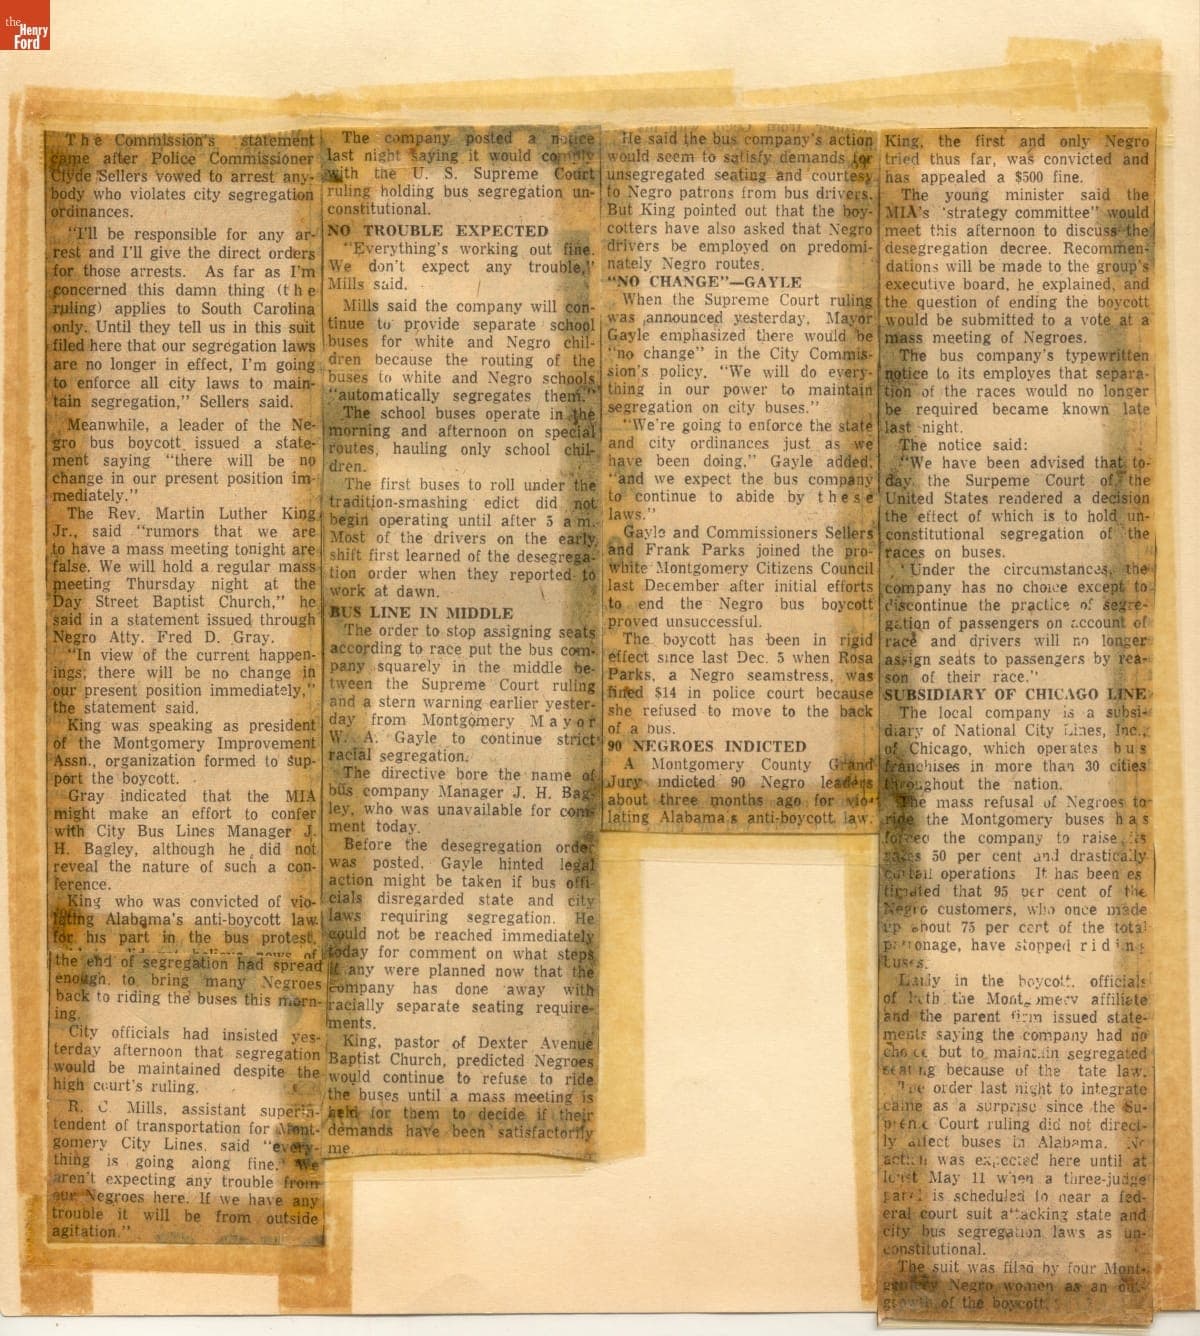 the
Henry
Ford
The Commission's statement
came after Police Commissioner
Clyde Sellers vowed to arrest any-
body who violates city segregation
ordinances.
"I'll be responsible for any ar-
rest and I'll give the direct orders
for those arrests. As far as I'm
concerned this damn thing (the
ruling) applies to South Carolina
only. Until they tell us in this suit
filed here that our segregation laws
are no longer in effect, I'm going
to enforce all city laws to main-
tain segregation," Sellers said.
Meanwhile, a leader of the Ne-
gro bus boycott issued a state-
ment saying "there will be no
change in our present position im-
mediately."
The Rev. Martin Luther King
Jr., said "rumors that we are
to have a mass meeting tonight are
false. We will hold a regular mass
meeting Thursday night at the
Day Street Baptist Church," he
said in a statement issued through
Negro Atty. Fred D. Gray.
"In view of the current happen-
ings, there will be no change in
our present position immediately,"
the statement said.
King was speaking as president
of the Montgomery Improvement
Assn., organization formed to sup-
port the boycott.
Gray indicated that the MIA
might make an effort to confer
with City Bus Lines Manager J.
H. Bagley, although he did not
reveal the nature of such a con-
ference.
King who was convicted of vio-
lating Alabama's anti-boycott law
for his part in the bus protest,
the end of segregation had spread
enough to bring many Negroes
back to riding the buses this morn-
ing.
City officials had insisted yes-
terday afternoon that segregation
would be maintained despite the
high court's ruling.
R. C. Mills, assistant superin-
tendent of transportation for Mont-
gomery City Lines, said "every-
thing is going along fine. We
aren't expecting any trouble from
our Negroes here. If we have any
trouble it will be from outside
agitation."
The company posted a notice
last night saying it would comply
with the U. S. Supreme Court
ruling holding bus segregation un-
constitutional.
NO TROUBLE EXPECTED
"Everything's working out fine.
We don't expect any trouble,"
Mills said.
Mills said the company will con-
tinue to provide separate school
buses for white and Negro chil-
dren because the routing of the
buses to white and Negro schools
"automatically segregates them."
The school buses operate in the
morning and afternoon on special
routes, hauling only school chil-
dren.
The first buses to roll under the
tradition-smashing edict did not
begin operating until after 5 a.m.
Most of the drivers on the early
shift first learned of the desegrega-
tion order when they reported to
work at dawn.
BUS LINE IN MIDDLE
The order to stop assigning seats
according to race put the bus com-
pany squarely in the middle be-
tween the Supreme Court ruling
and a stern warning earlier yester-
day from Montgomery Mayor
W. A. Gayle to continue strict
racial segregation.
The directive bore the name of
bus company Manager J. H. Bag-
ley, who was unavailable for com-
ment today.
Before the desegregation order
was posted, Gayle hinted legal
action might be taken if bus offi-
cials disregarded state and city
laws requiring segregation. He
could not be reached immediately
today for comment on what steps
if any were planned now that the
company has done away with
racially separate seating require-
ments.
King, pastor of Dexter Avenue
Baptist Church, predicted Negroes
would continue to refuse to ride
the buses until a mass meeting is
held for them to decide if their
demands have been satisfactorily
me.
He said the bus company's action
would seem to satisfy demands for
unsegregated seating and courtesy
to Negro patrons from bus drivers.
But King pointed out that the boy-
cotters have also asked that Negro
drivers be employed on predomi-
nately Negro routes.
"NO CHANGE"—GAYLE
When the Supreme Court ruling
was announced yesterday, Mayor
Gayle emphasized there would be
"no change" in the City Commis-
sion's policy. "We will do every-
thing in our power to maintain
segregation on city buses."
"We're going to enforce the state
and city ordinances just as we
have been doing," Gayle added,
"and we expect the bus company
to continue to abide by these
laws."
Gayle and Commissioners Sellers
and Frank Parks joined the pro-
white Montgomery Citizens Council
last December after initial efforts
to end the Negro bus boycott
proved unsuccessful.
The boycott has been in rigid
effect since last Dec. 5 when Rosa
Parks, a Negro seamstress, was
fined $14 in police court because
she refused to move to the back
of a bus.
90 NEGROES INDICTED
A Montgomery County Grand
Jury indicted 90 Negro leaders
about three months ago for vio-
lating Alabama's anti-boycott law.
King, the first and only Negro
tried thus far, was convicted and
has appealed a $500 fine.
The young minister said the
MIA's 'strategy committee" would
meet this afternoon to discuss the
desegregation decree. Recommen-
dations will be made to the group's
executive board, he explained, and
the question of ending the boycott
would be submitted to a vote at a
mass meeting of Negroes.
The bus company's typewritten
notice to its employes that separa-
tion of the races would no longer
be required became known late
last night.
The notice said:
"We have been advised that to-
day, the Surpeme Court of the
United States rendered a decision
the effect of which is to hold un-
constitutional segregation of the
races on buses.
'Under the circumstances, the
company has no choice except to
discontinue the practice of segre-
gation of passengers on account of
race and drivers will no longer
assign seats to passengers by rea-
son of their race."
SUBSIDIARY OF CHICAGO LINE
The local company is a subsi-
diary of National City Lines, Inc.,
of Chicago, which operates bus
franchises in more than 30 cities
throughout the nation.
The mass refusal of Negroes to
ride the Montgomery buses has
forced the company to raise its
rates 50 per cent and drastically
curtail operations It has been es
timated that 95 per cent of the
Negro customers, who once made
up about 75 per cert of the total
patronage, have stopped riding
buses.
Early in the boycott, officials
of both the Montgomery affiliate
and the parent firm issued state-
ments saying the company had no
choice but to maintain segregated
seating because of the tate law.
The order last night to integrate
came as a surprise since the Su-
preme Court ruling did not direct-
ly affect buses in Alabama. No
action was expected here until at
least May 11 when a three-judge
panel is scheduled to hear a fed-
eral court suit attacking state and
city bus segregation laws as un-
constitutional.
The suit was filed by four Mont-
gomery Negro women as an out-
growth of the boycott.